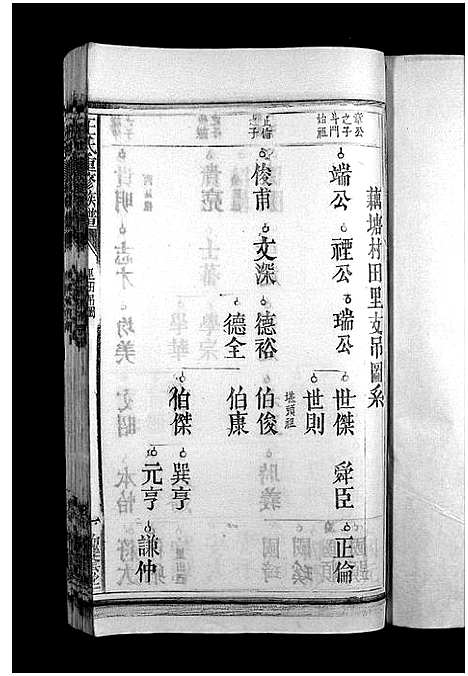 藕塘村田里支吊圖系
章公
之子
斗門
始祖
端公
禋公
瑞公
世傑
舜臣
正倫
世則
堪頭祖
正倫
之子
俊甫
文深
德裕
伯俊
德全
伯康
伯傑
巽亨
元亨
謙仲
王氏重修族譜